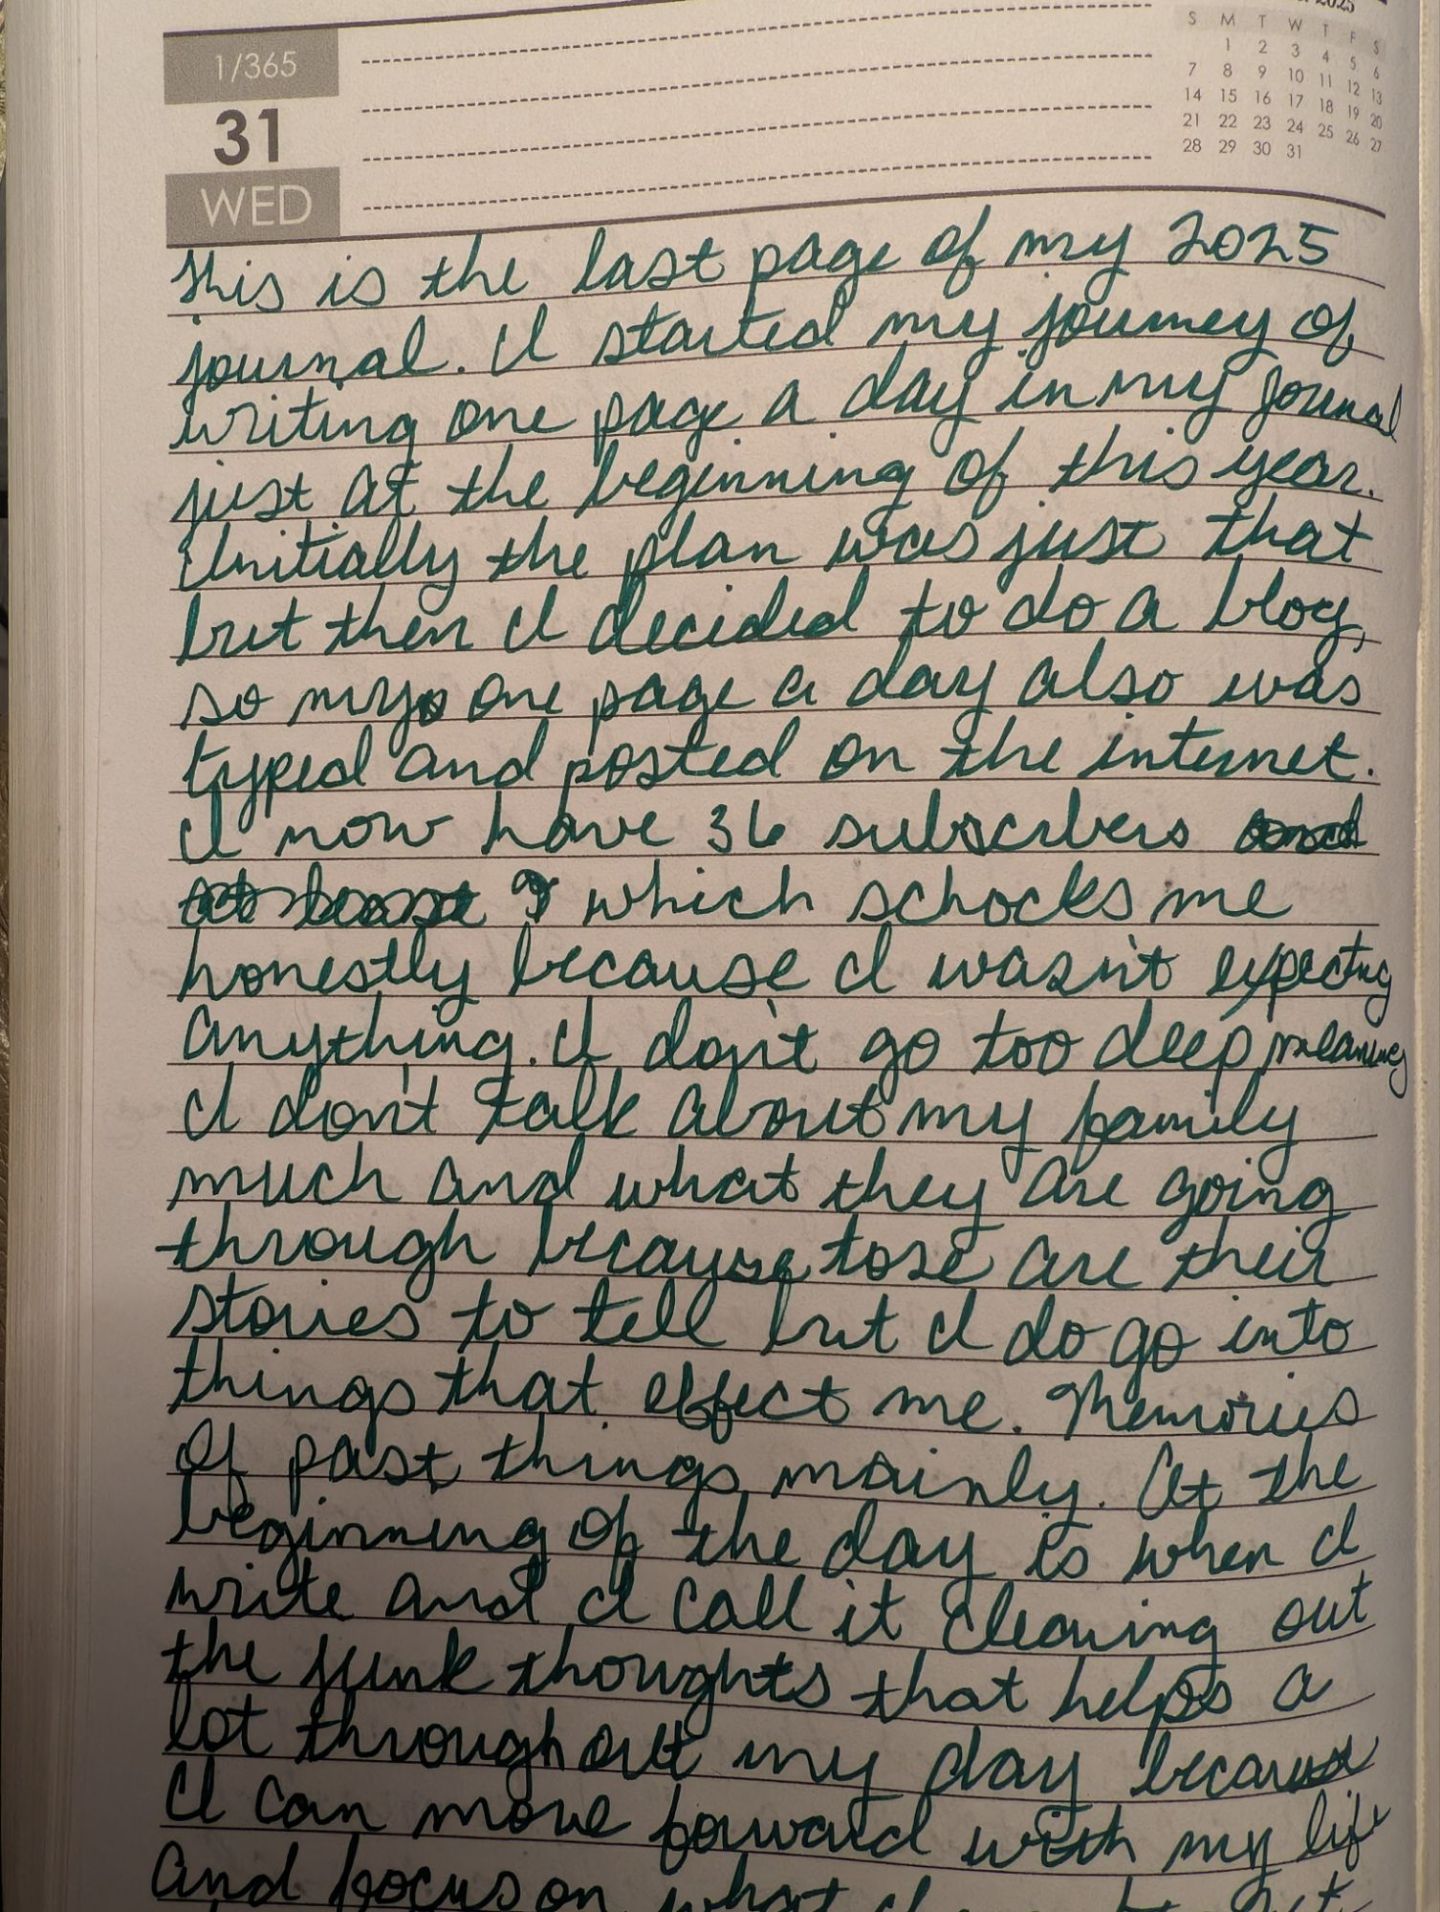 2025
S M T W T F S
1 2 3 4 5 6
7 8 9 10 11 12 13
14 15 16 17 18 19 20
21 22 23 24 25 26 27
28 29 30 31
1/365
31
WED
This is the last page of my 2025
journal. I started my journey of
writing one page a day in my journal
just at the beginning of this year.
Initially the plan was just that
but then I decided to do a blog,
so my one page a day also was
typed and posted on the internet.
I now have 36 subscribers and
at least which schocks me
honestly because I wasn't expecting
anything. I don't go too deep meaning
I don't talk about my family
much and what they are going
through because tose are their
stories to tell but I do go into
things that effect me. Memories
of past things mainly. At the
beginning of the day is when I
write and I call it cleaning out
the junk thoughts that helps a
lot throughout my day because
I can move forward with my life
and focus on what I